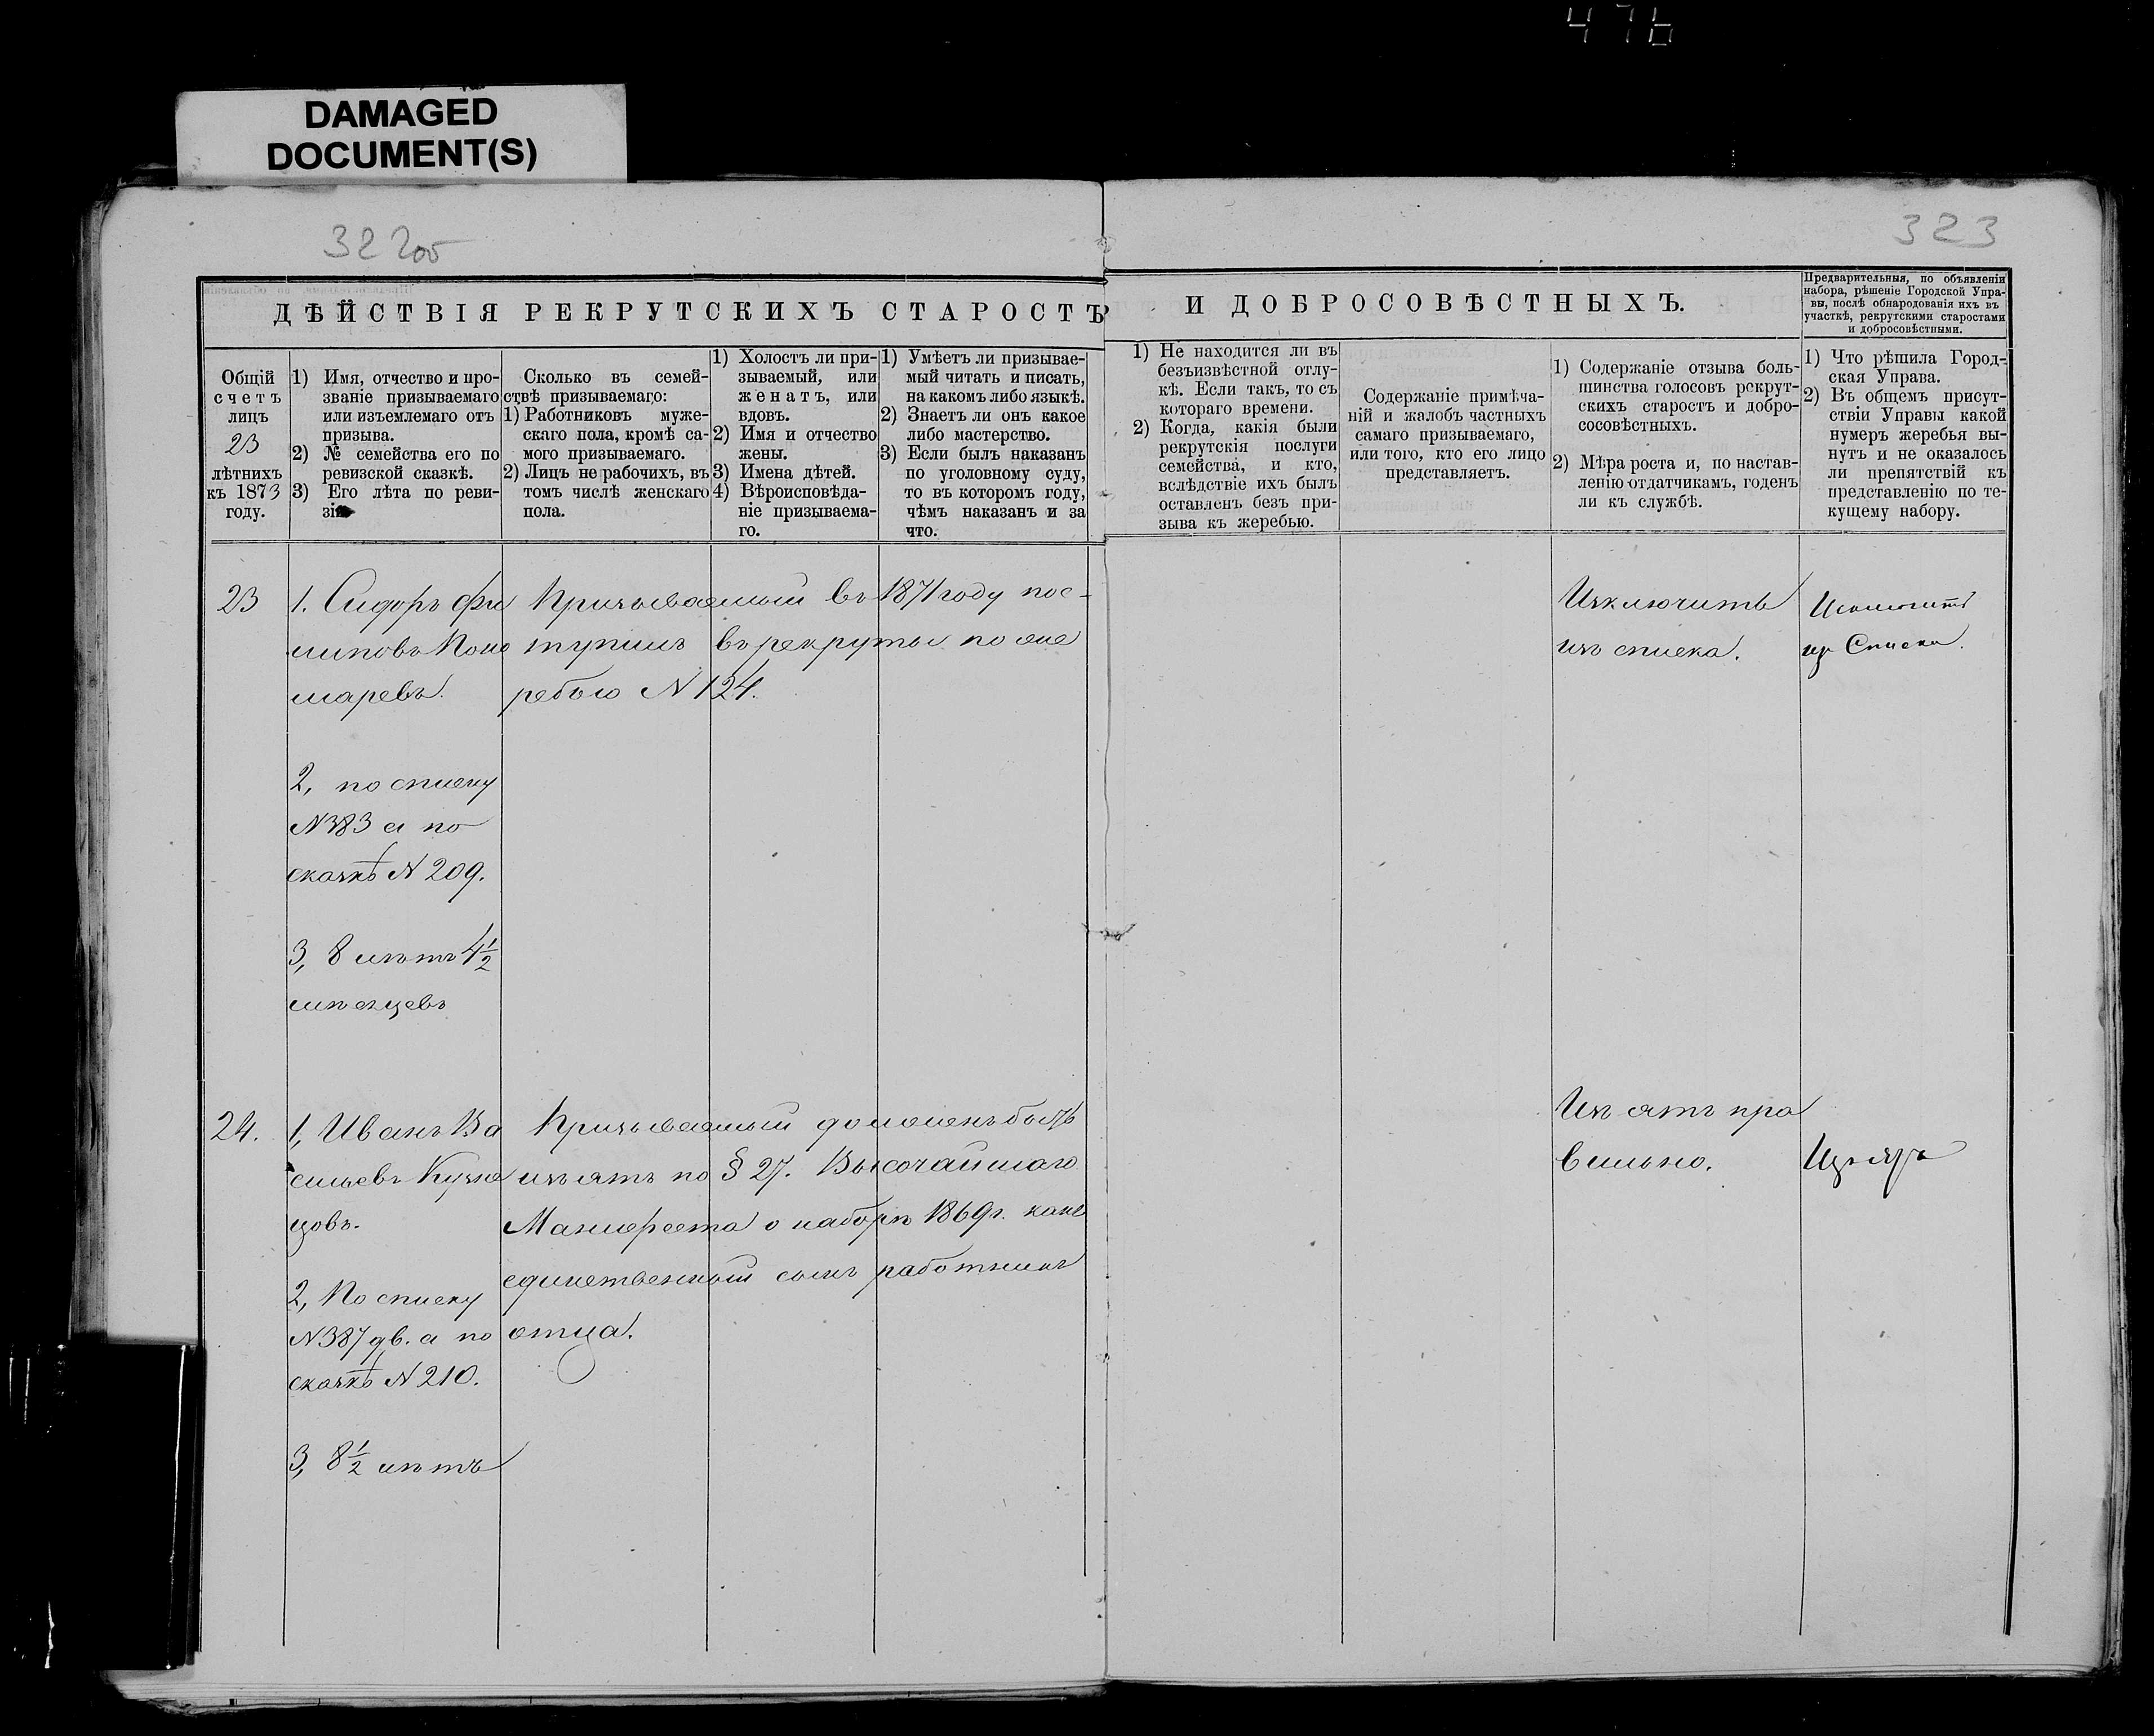 476
DAMAGED
DOCUMENT(S)
322 об
323
ДѢЙСТВІЯ РЕКРУТСКИХЪ СТАРОСТЪ
И ДОБРОСОВѢСТНЫХЪ.
Предварительныя, по объявленіи
набора, рѣшеніе Городской Упра-
вы, послѣ обнародованія ихъ въ
участкѣ, рекрутскими старостами
и добросовѣстными.
Общій
счетъ
лицъ
23
лѣтнихъ
къ 1873
году.
1) Имя, отчество и про-
званіе призываемаго
или изъемлемаго отъ
призыва.
2) № семейства его по
ревизской сказкѣ.
3) Его лѣта по реви-
зіи
Сколько въ семей-
ствѣ призываемаго:
1) Работниковъ муже-
скаго пола, кромѣ са-
мого призываемаго.
2) Лицъ не рабочихъ, въ
томъ числѣ женскаго
пола.
1) Холостъ ли при-
зываемый, или
женатъ, или
вдовъ.
2) Имя и отчество
жены.
3) Имена дѣтей.
4) Вѣроисповѣда-
ніе призываема-
го.
1) Умѣетъ ли призывае-
мый читать и писать,
на какомъ либо языкѣ.
2) Знаетъ ли онъ какое
либо мастерство.
3) Если былъ наказанъ
по уголовному суду,
то въ которомъ году,
чѣмъ наказанъ и за
что.
1) Не находится ли въ
безъизвѣстной отлу-
кѣ. Если такъ, то съ
котораго времени.
2) Когда, какія были
рекрутскія послуги
семейства, и кто,
вслѣдствіе ихъ былъ
оставленъ безъ при-
зыва къ жеребью.
Содержаніе примѣча-
ній и жалобъ частныхъ
самаго призываемаго,
или того, кто его лицо
представляетъ.
1) Содержаніе отзыва боль-
шинства голосовъ рекрут-
скихъ старостъ и добро-
сосовѣстныхъ.
2) Мѣра роста и, по настав-
ленію отдатчикамъ, годенъ
ли къ службѣ.
1) Что рѣшила Город-
ская Управа.
2) Въ общемъ присут-
ствіи Управы какой
нумеръ жеребья вы-
нутъ и не оказалось
ли препятствій къ
представленію по те-
кущему набору.
23
1. Сидоръ Фи
липовъ Поно
маревъ.
2, по списку
N383 а по
сказкѣ N 209.
3, 8 лѣтъ 4½
мѣсяцевъ
Призываемый въ 1871 году пос-
тупилъ въ рекруты по же
ребью N 124.
Изключить
изъ списка.
Исключить
изъ Списка.
24.
1, Иванъ Ва
сильевъ Кузне
цовъ.
2, По списку
N387 дв. а по
сказкѣ N 210.
3, 8½ лѣтъ
Призываемый долженъ быть
изъятъ по § 27. Высочайшаго
Манифеста о наборѣ 1869г. какъ
единственный сынъ работникъ
отца.
Изъятъ пра
вильно.
Изъятъ